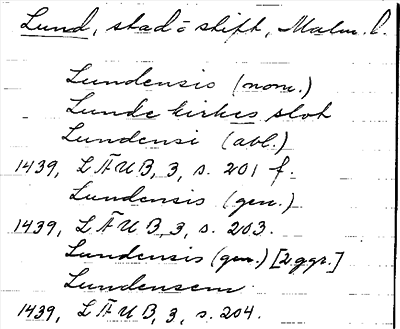 Lund, stad o stift, Malm. l.
Lundensis (nom.)
Lunde kirkes slot
Lundensi (abl.)
1439, LÄUB, 3, s. 201 f.
Lundensis (gen.)
1439, LÄUB, 3, s. 203.
Lundensis (gen.) [2 ggr.]
Lundensem
1439, LÄUB, 3, s. 204.